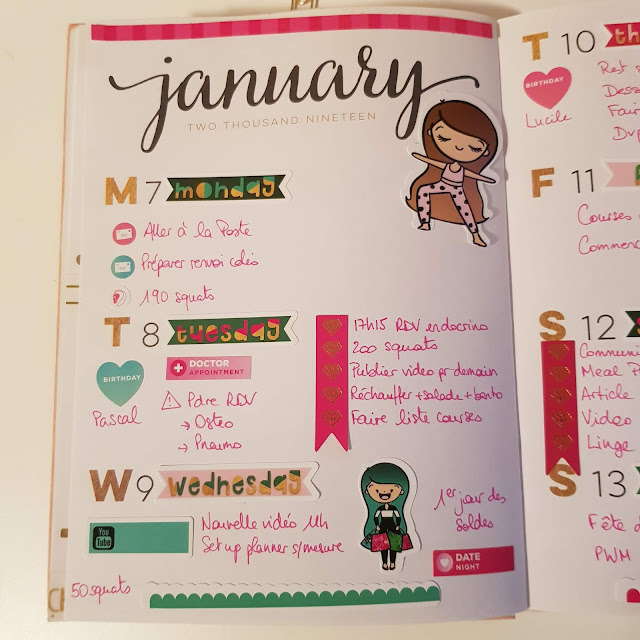 january
TWO THOUSAND NINETEEN
M 7 monday
Aller à la Poste
Préparer renvoi colis
190 squats
T 8 tuesday
BIRTHDAY
Pascal
DOCTOR
APPOINTMENT
Pdre RDV
→ Osteo
→ Pneumo
17h15 RDV endocrino
200 squats
Publier video pr demain
Réchauffer + salade + bento
Faire liste courses
W 9 wednesday
You
Tube
Nouvelle vidéo 11h
Set up planner s/mesure
1er jour des
Soldes
DATE
NIGHT
50 squats
T 10 th
BIRTHDAY
Lucile
Rest
Dess
Fair
F 11
Courses
Commenc
S 12
Commun
Meal P
Article
Video
Linge
S 13
Fête
PWM